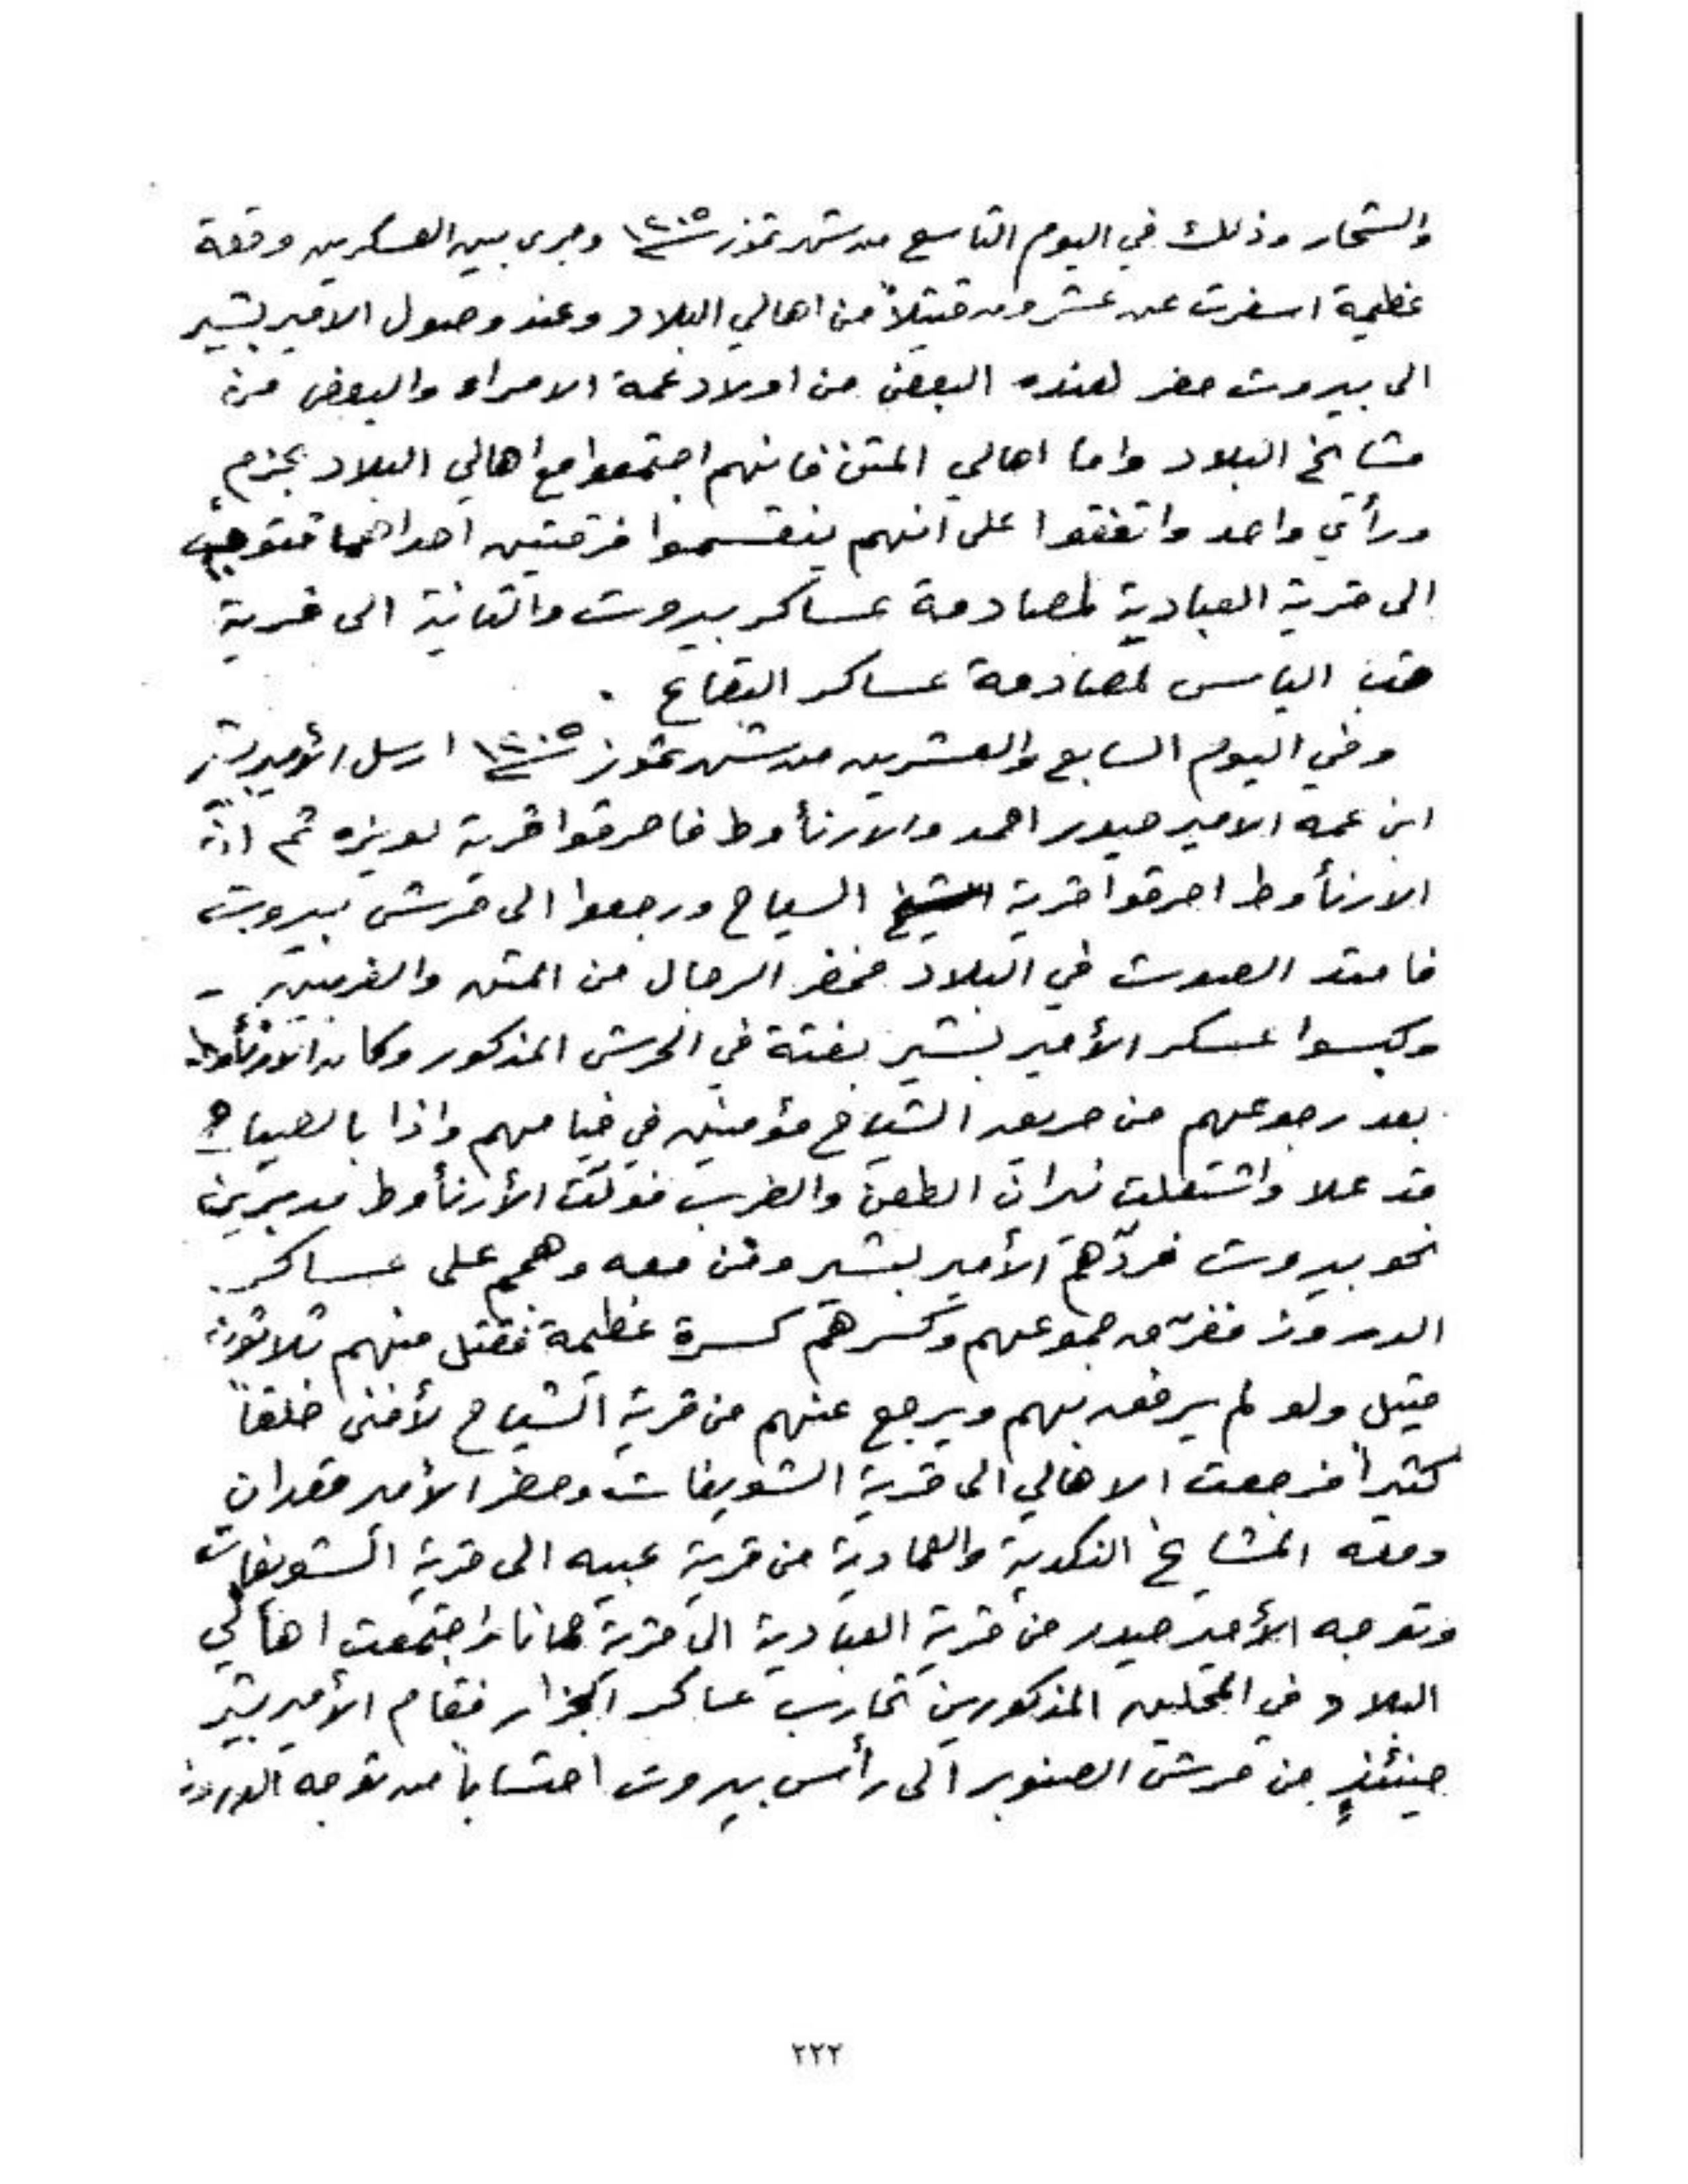 والشحار وذلك في اليوم التاسع من شهر تموز سنة ١٢٠٥ وجرى بين العسكرين وقعة
عظيمة اسفرت عن عشرون قتيلاً من اهالي البلاد وعند وصول الامير بشير
الى بيروت حضر لعنده البعض من اولاد عمه الامراء والبعض من
مشايخ البلاد واما اهالي المتن فانهم اجتمعوا مع اهالي البلاد بحزم
ورأي واحد واتفقوا على انهم ينقسموا فرقتين احداهما تتوجه
الى قرية العبادية لمصادمة عساكر بيروت والثانية الى قرية
قب الياس لمصادمة عساكر البقاع .
وفي اليوم السابع والعشرين من شهر تموز سنة ١٢٠٥ ارسل الأمير بشير
ابن عمه الامير حيدر احمد والارنأوط فاحرقوا قرية لويزه ثم ان
الارنأوط احرقوا قرية السياح ورجعوا الى حرش بيروت
فامتد الصوت في البلاد فحضر الرجال من المتن والغربين -
وكبسوا عسكر الأمير بشير بغتة في الحرش المذكور وكان الارنأوط
بعد رجوعهم من حريق الشياح مؤمنين في خيامهم واذا بالصياح
قد علا واشتعلت نيران الطعن والضرب فولّت الأرنأوط مدبرين
نحو بيروت فردّهم الأمير بشير ومن معه وهجم على عساكر
الدروز ففرّق جموعهم وكسرهم كسرة عظيمة فقتل منهم ثلاثون
قتيل ولو لم يرفق بهم ويرجع عنهم من قرية الشياح لأفنى خلقاً
كثيراً فرجعت الاهالي الى قرية الشويفات وحضر الأمير قعدان
ومعه المشايخ النكدية والعمادية من قرية عبيه الى قرية الشويفات
وتوجه الأمير حيدر من قرية العبادية الى قرية حمانا واجتمعت اهالي
البلاد في المحلين المذكورين تحارب عساكر الجزار فقام الأمير بشير
حينئذٍ من حرش الصنوبر الى رأس بيروت احتساباً من توجه الدروز
٢٢٢